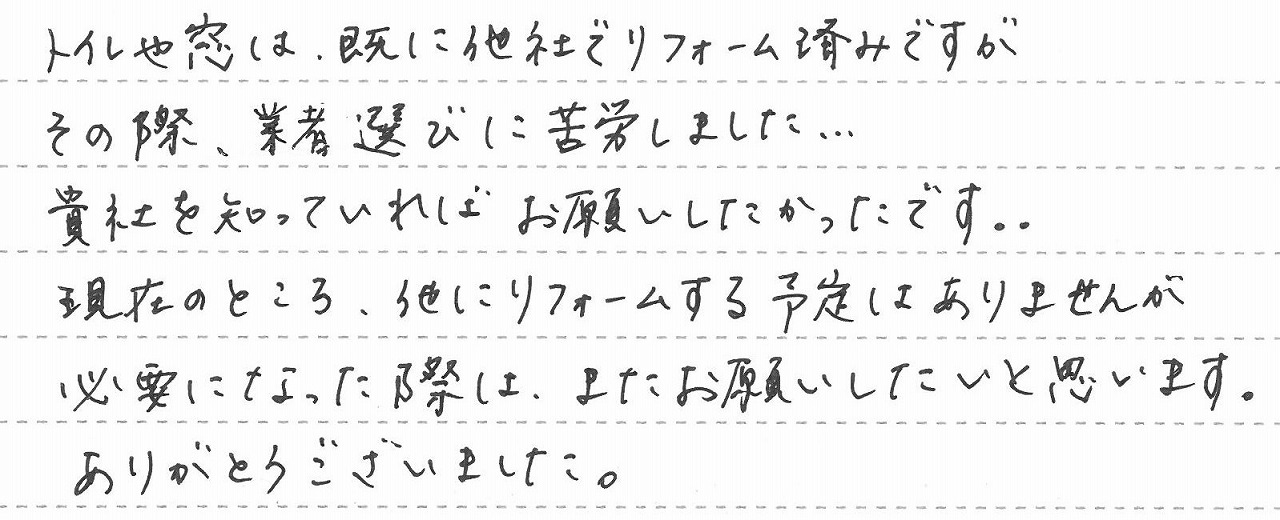 トイレや窓は、既に他社でリフォーム済みですが
その際、業者選びに苦労しました…
貴社を知っていればお願いしたかったです..
現在のところ、他にリフォームする予定はありませんが
必要になった際は、またお願いしたいと思います。
ありがとうございました。